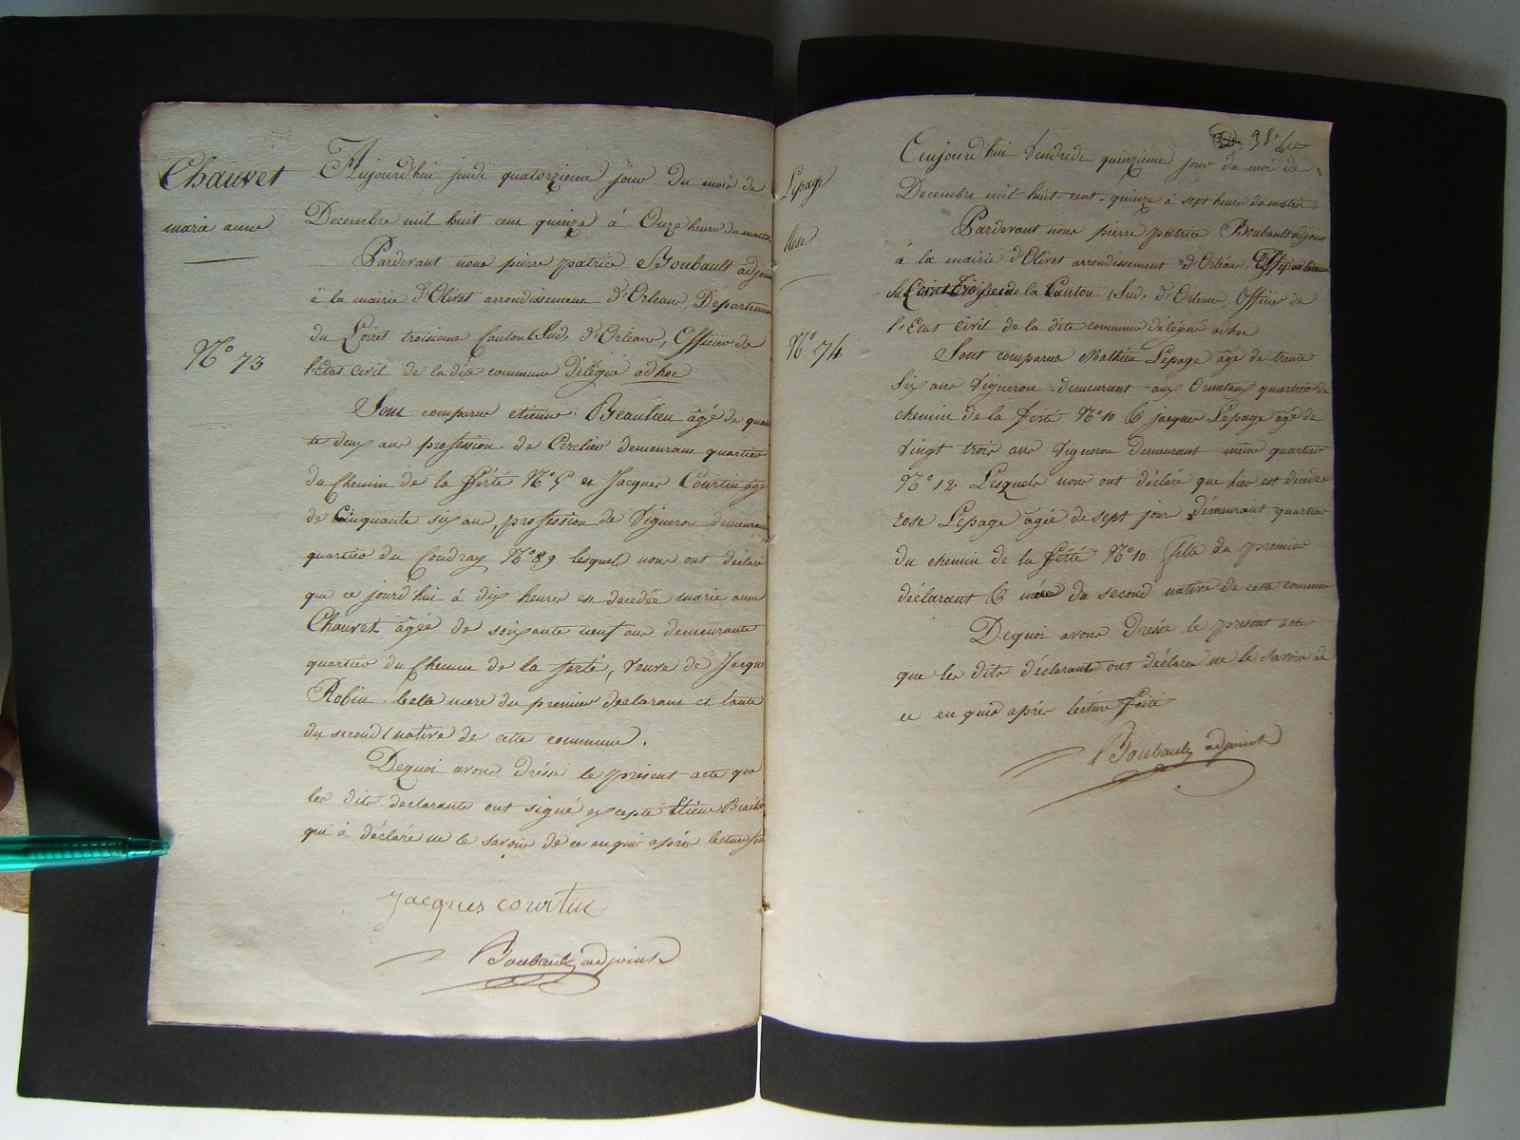 Chauvet
marie anne
N° 73
Aujourd'hui jeudi quatorzieme jour du mois de
Decembre mil huit cent quinze à Onze heures du matin
Pardevant nous pierre patrice Boubault adjoint
à la mairie d'Olivet arrondissement d'Orleans, Departement
du Loiret troisieme Canton Sud, d'Orleans, Officier de
l'Etat civil de la dite commune Délégué ad hoc
Sont comparus etienne Beaulieu âgé de quaran
te deux ans profession de Cerclier demeurant quartier
du Chemin de la ferté N° 5 et Jacques Courtin âgé
de Cinquante six ans, profession de Vigneron demeurant
quartier du Coudray N° 89 lesquels nous ont déclaré
que ce jourd'hui à dix heures est decedée marie anne
Chauvet âgée de soixante neuf ans demeurante
quartier du Chemin de la ferté, veuve de Jacques
Robin belle mere du premier declarant et tante
du second native de cette commune.
Dequoi avons dréssé le présent acte que
les dits declarants ont signé excepté Etiene
qui à déclaré ne le savoir de ce enquis après lecture
jacques courtin
Boubault adjoint
31
Lepage
Rose
N° 74
Cejourd'hui Vendredi quinzieme jour du moi de
Decembre mil huit cent quinze à sept heures du matin
Pardevant nous pierre patrice Boubault adjoint
à la mairie d'Olivet arrondissement d'Orléans,
du Loiret Canton Sud, d'Orleans, Officier de
l'Etat Civil de la dite commune délégué ad hoc
Sont comparus Mathieu Lepage âgé de trente
six ans Vigneron demeurant aux Ormeteaux quartier du
chemin de la ferté N° 10 & jacques Lepage âgé de
Vingt trois ans Vigneron demeurant même quartier
N° 12 Lesquels nous ont déclaré que hier est décédée
rose Lepage âgée de sept jour démeurant quartier
du chemin de la ferté N° 10 fille du premier
déclarant & niéce du second native de cette commune
Dequoi avons Dressé le présent acte
que les dits déclarants ont déclaré ne le savoir de
ce enquis après lecture faite
Boubault adjoint